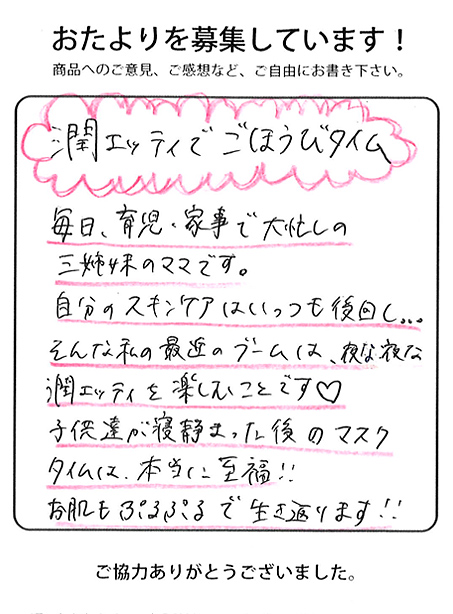 おたよりを募集しています！
商品へのご意見、ご感想など、ご自由にお書き下さい。
潤エッティでごほうびタイム
毎日、育児・家事で大忙しの
三姉妹のママです。
自分のスキンケアはいっつも後回し...
そんな私の最近のブームは、夜な夜な
潤エッティを楽しむことです♡
子供達が寝静まった後のマスク
タイムは、本当に至福!!
お肌もぷるぷるで生き返ります!!
ご協力ありがとうございました。